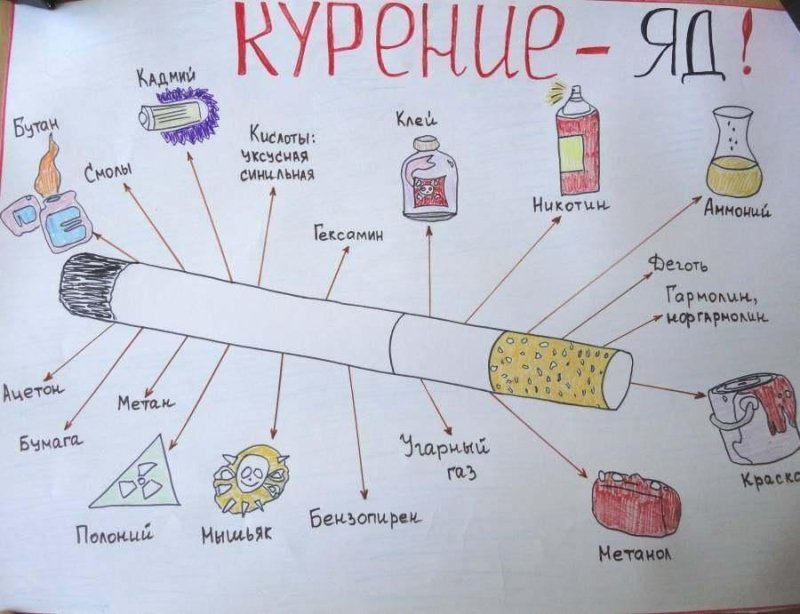 КУРЕНИЕ - ЯД!
Кадмий
Бутан
Смолы
Кислоты:
уксусная
синильная
Клей
Гексамин
Никотин
Аммоний
Деготь
Гармолин,
норгармолин
Ацетон
Бумага
Метан
Полоний
Мышьяк
Бензопирен
Угарный
газ
Метанол
Краска